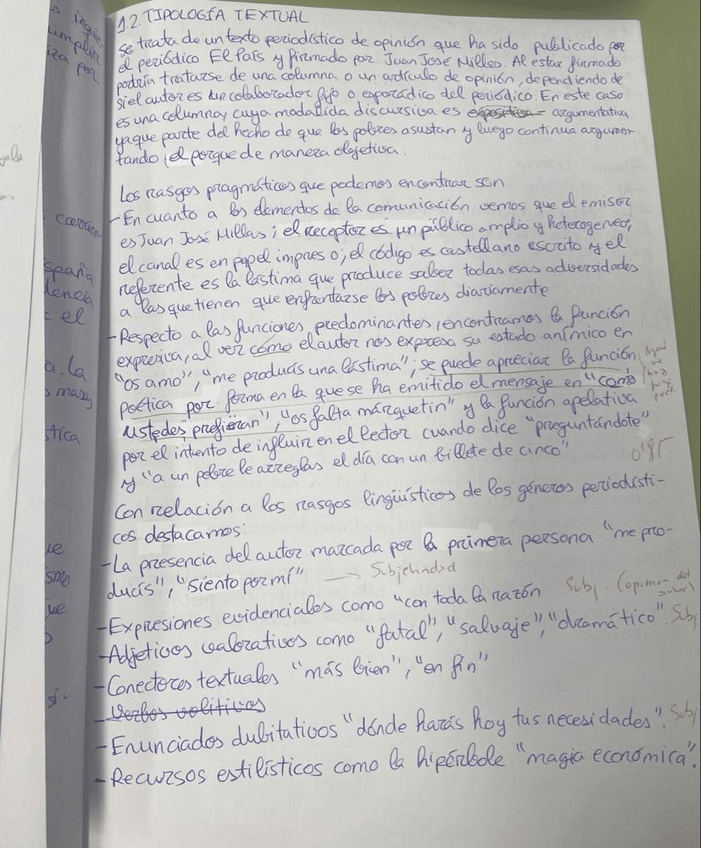 1.2 TIPOLOGÍA TEXTUAL
Se trata de un texto periodístico de opinión que ha sido publicado por
el periódico El País y firmado por Juan José Millas. Al estar firmado
podría tratarse de una columna o un artículo de opinión, dependiendo de
si el autor es un colaborador fijo o esporádico del periódico. En este caso
es una columna, cuya modalida discursiva es expositiva argumentativa
ya que parte del hecho de que los pobres asustan y luego continua argumen-
tando el porque de manera objetiva.
Los rasgos pragmáticos que podemos encontrar son
-En cuanto a los elementos de la comunicación vemos que el emisor
es Juan José Millas; el receptor es un público amplio y heterogeneo,
el canal es en papel impreso; el código es castellano escrito y el
referente es la lástima que produce saber todas esas adversidades
a las que tienen que enfrentarse los pobres diariamente
-Respecto a las funciones predominantes, encontramos la función
expresiva, al ver cómo el autor nos expresa su estado anímico en
"os amo", "me producís una lástima"; se puede apreciar la función
poética por forma en la que se ha emitido el mensaje en "como
ustedes prefieran", "os falta márquetin" y la función apelativa
por el intento de influir en el lector cuando dice "preguntándote"
y "a un pobre le arreglas el día con un billete de cinco"
0'85
Con relación a los rasgos lingüísticos de los géneros periodísti-
cos destacamos:
-La presencia del autor marcada por la primera persona "me pro-
ducís", "siento por mí" → Subjetividad
-Expresiones evidenciales como "con toda la razón Subj. (opinión del
-Adjetivos valorativos como "fatal", "salvaje", "dramático". Subj
-Conectores textuales "más bien", "en fin"
-Verbos volitivos
-Enunciados dubitativos "dónde harás hoy tus necesidades". Subj
-Recursos estilísticos como la hipérbole "magia económica".